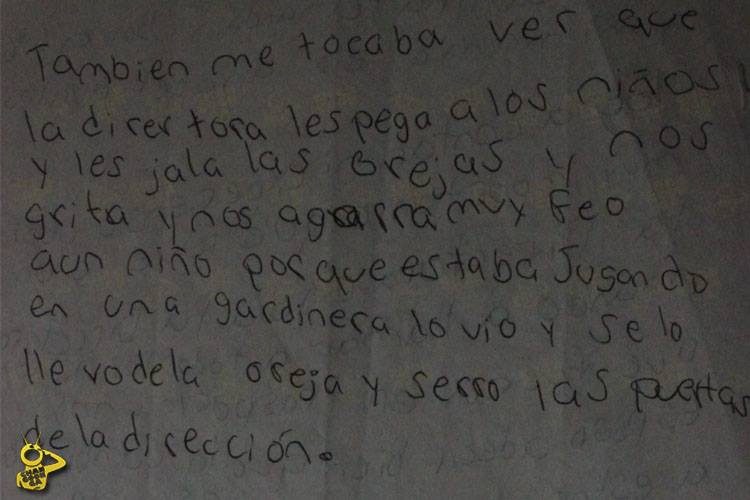 Tambien me tocaba ver que
la direrтora les pega a los niños
y les jala las orejas y nos
grita y nos agarra muy feo
aun niño porque estaba Jugando
en una gardinera lo vio y se lo
lle vo dela oreja y serro las puertas
de la dirección.